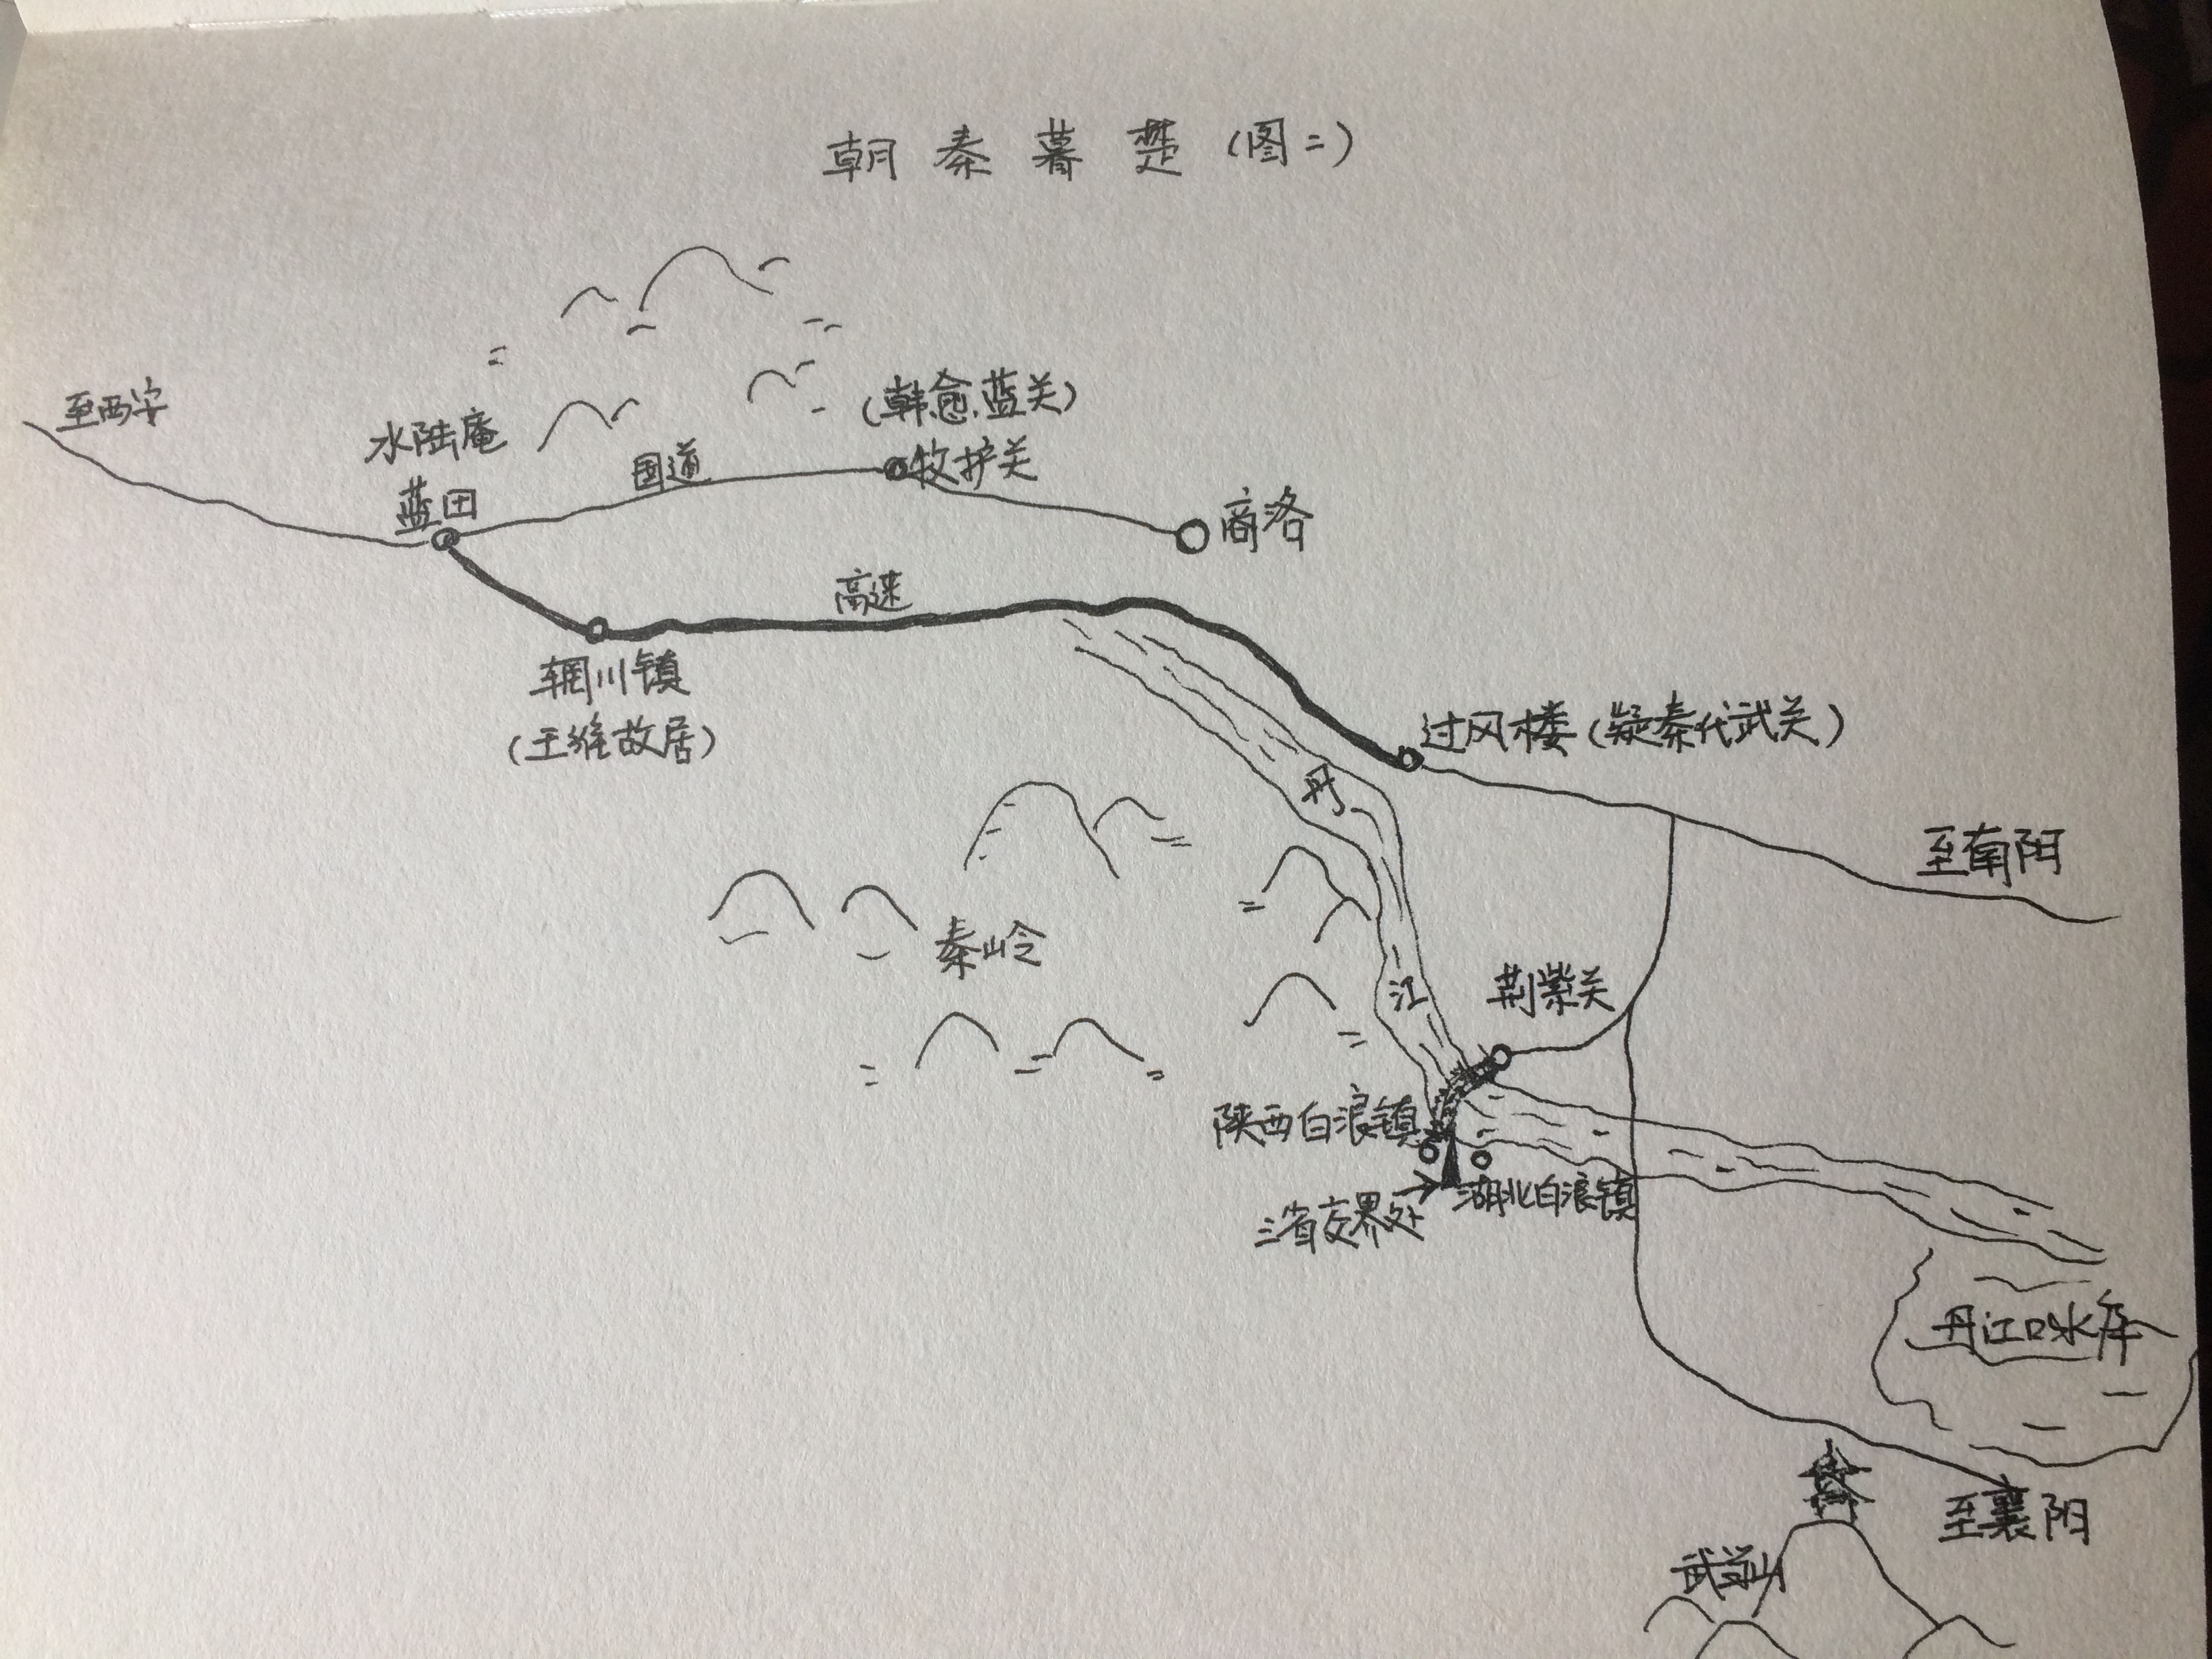 朝秦暮楚(图二)
至西安
水陆庵
蓝田
国道
(韩愈.蓝关)
牧护关
商洛
高速
辋川镇
(王维故居)
过风楼(疑秦代武关)
丹
江
至南阳
秦岭
荆紫关
陕西白浪镇
湖北白浪镇
三省交界处
丹江口水库
至襄阳
武当山